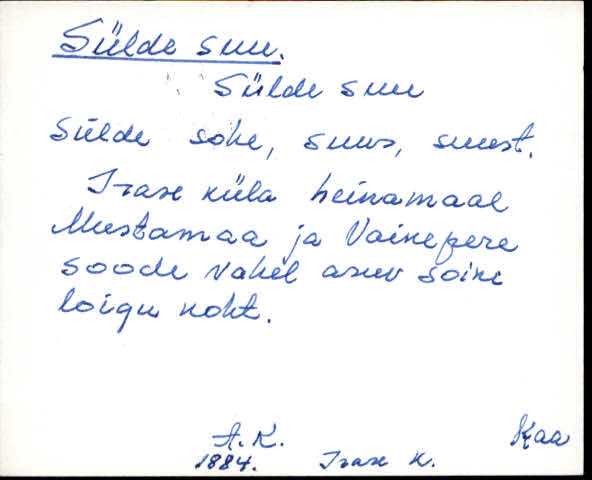 Sülde suu.
Sülde suu
Sülde sohe, suus, suust.
Irase küla heinamaal
Mustamaa ja Vainepere
soode vahel asuv soine
loigu koht.
A. K. Kaa
1884. Irase k.